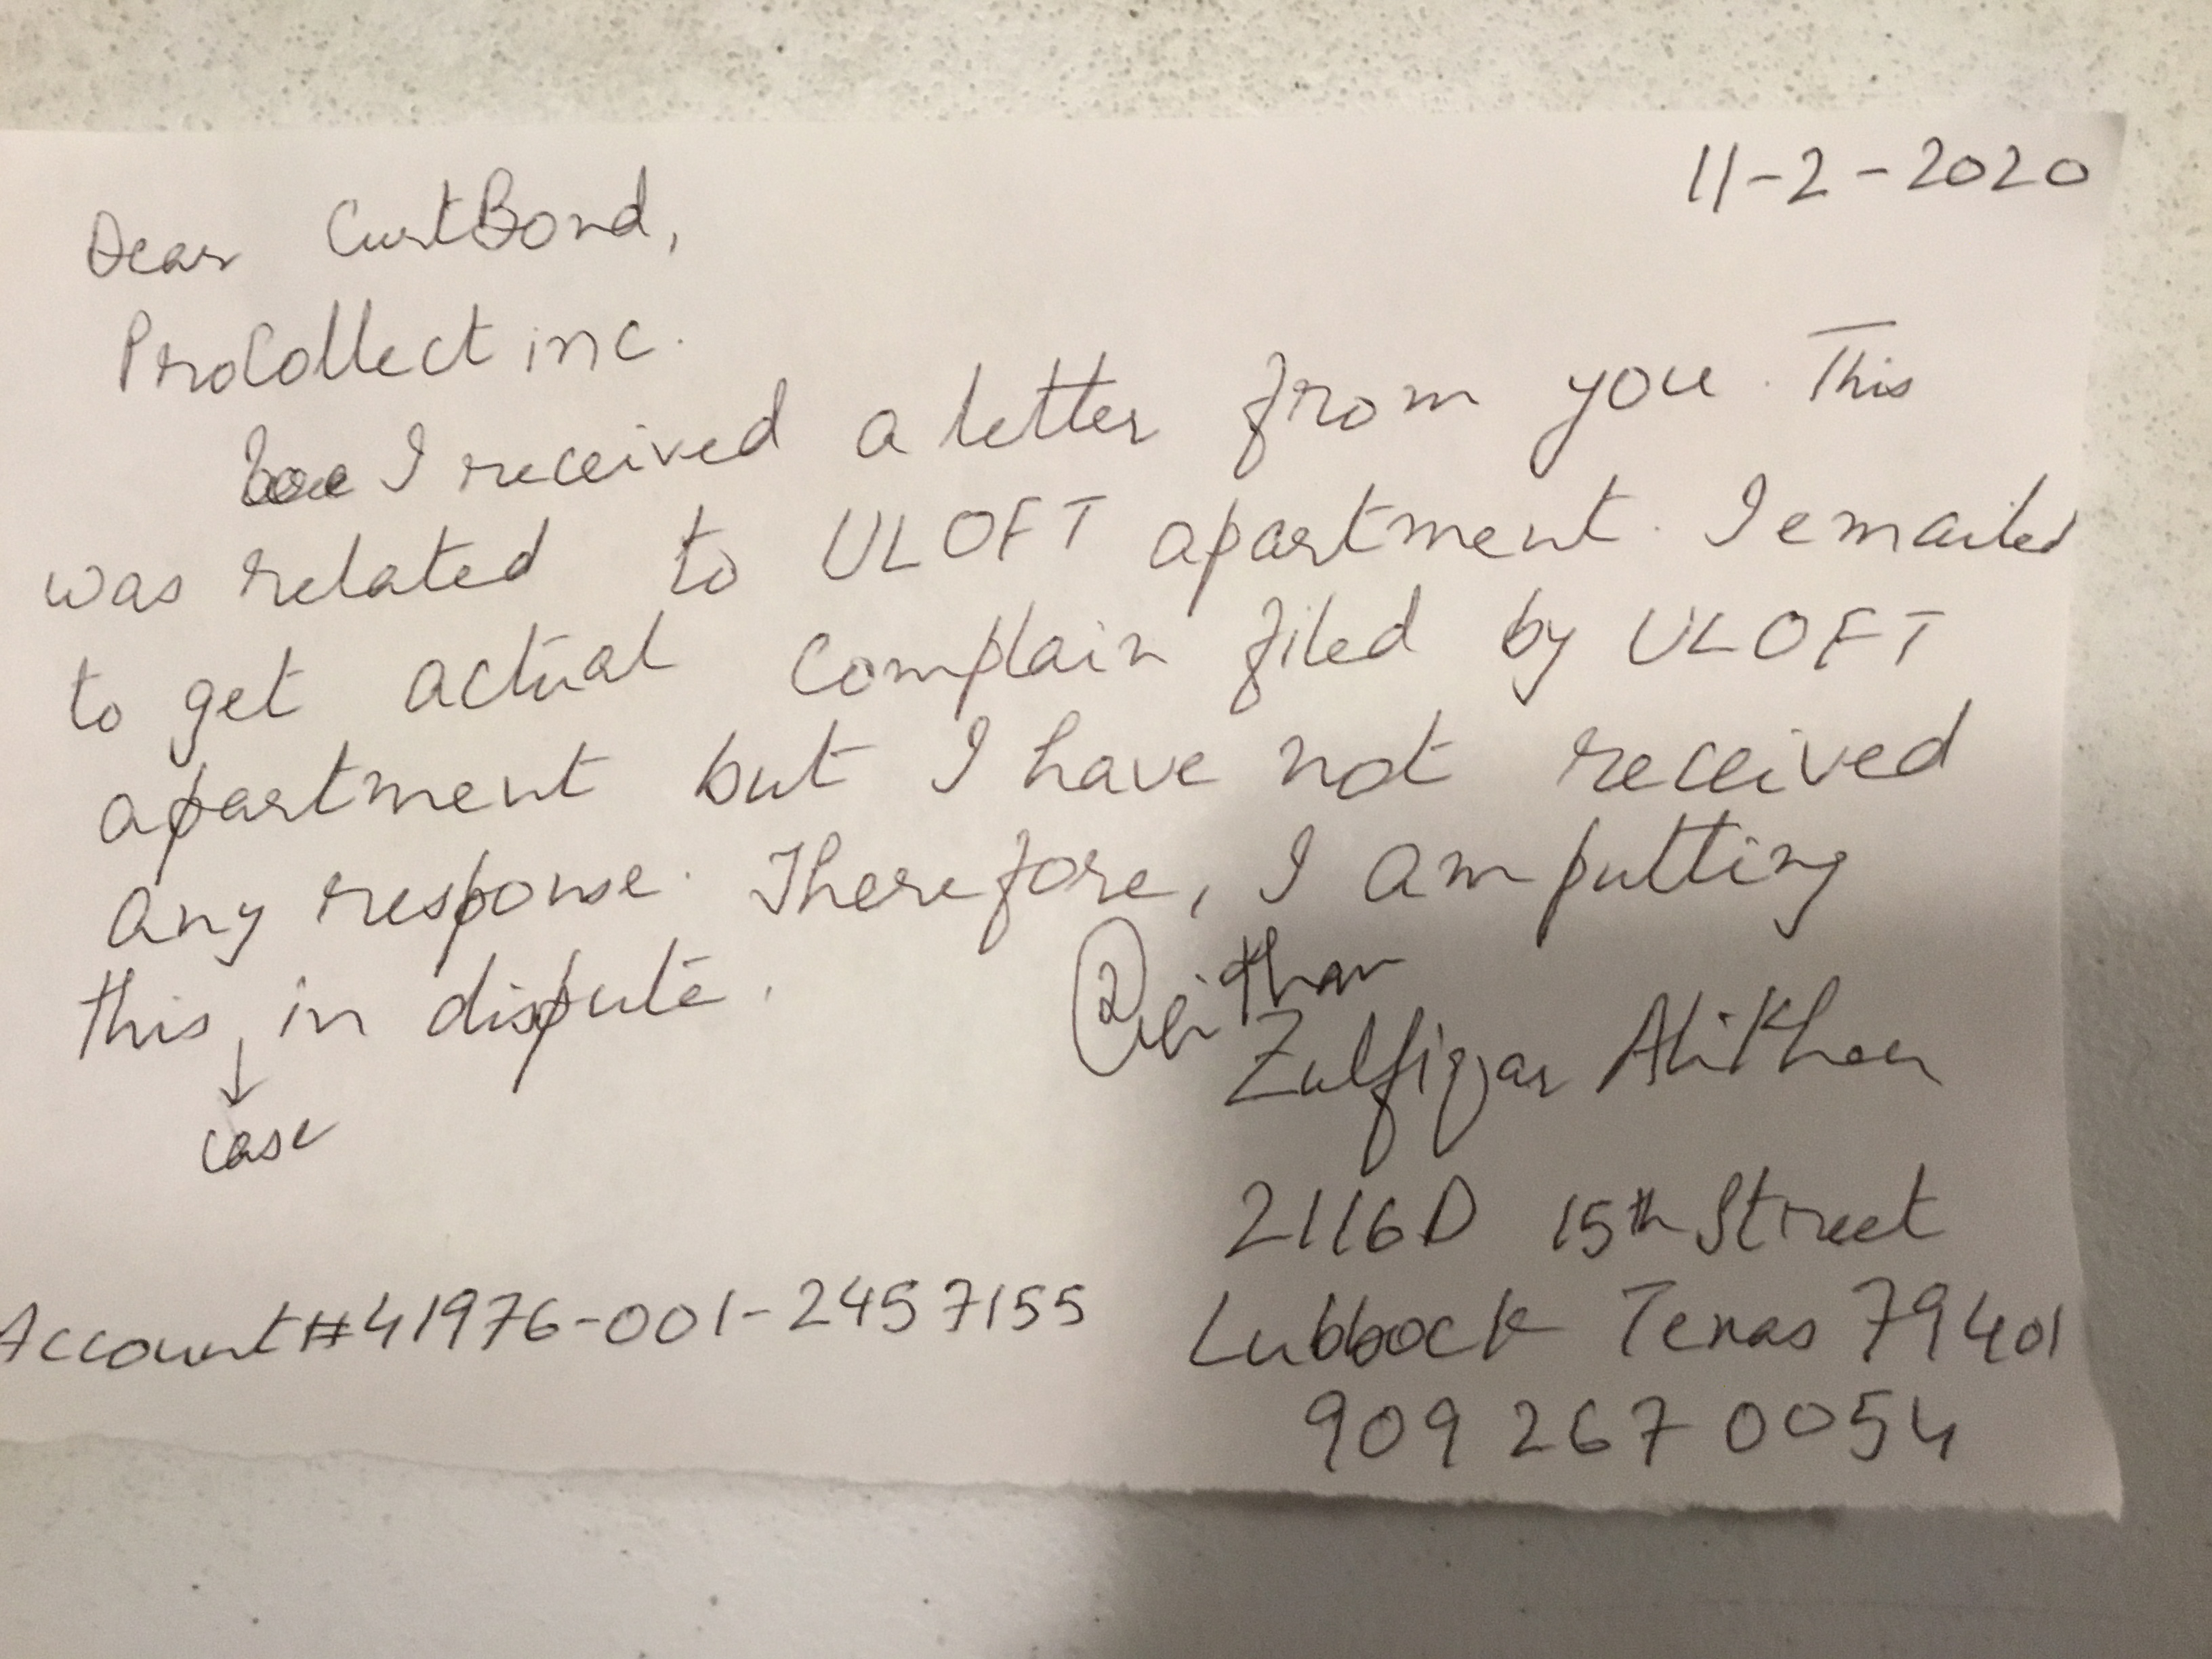 11-2-2020
Dear Curt Bond,
ProCollect inc.
I received a letter from you. This
was related to ULOFT apartment. I emailed
to get actual complain filed by ULOFT
apartment but I have not received
any response. Therefore, I am putting
this in dispute.
↓
case
Zulfiqar Ali Khan
2116D 15th Street
Account # 41976-001-2457155
Lubbock Texas 79401
909 267 0054